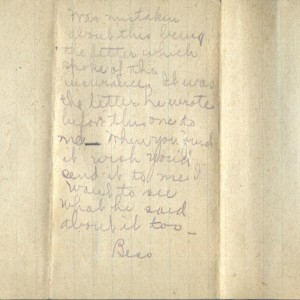 Was mistaken
about this being
the letter which
spoke of this
insurance. It was
the letter he wrote
before this one to
me— When you find
it wish you'd
send it to me I
want to see
what he said
about it too—
Bess